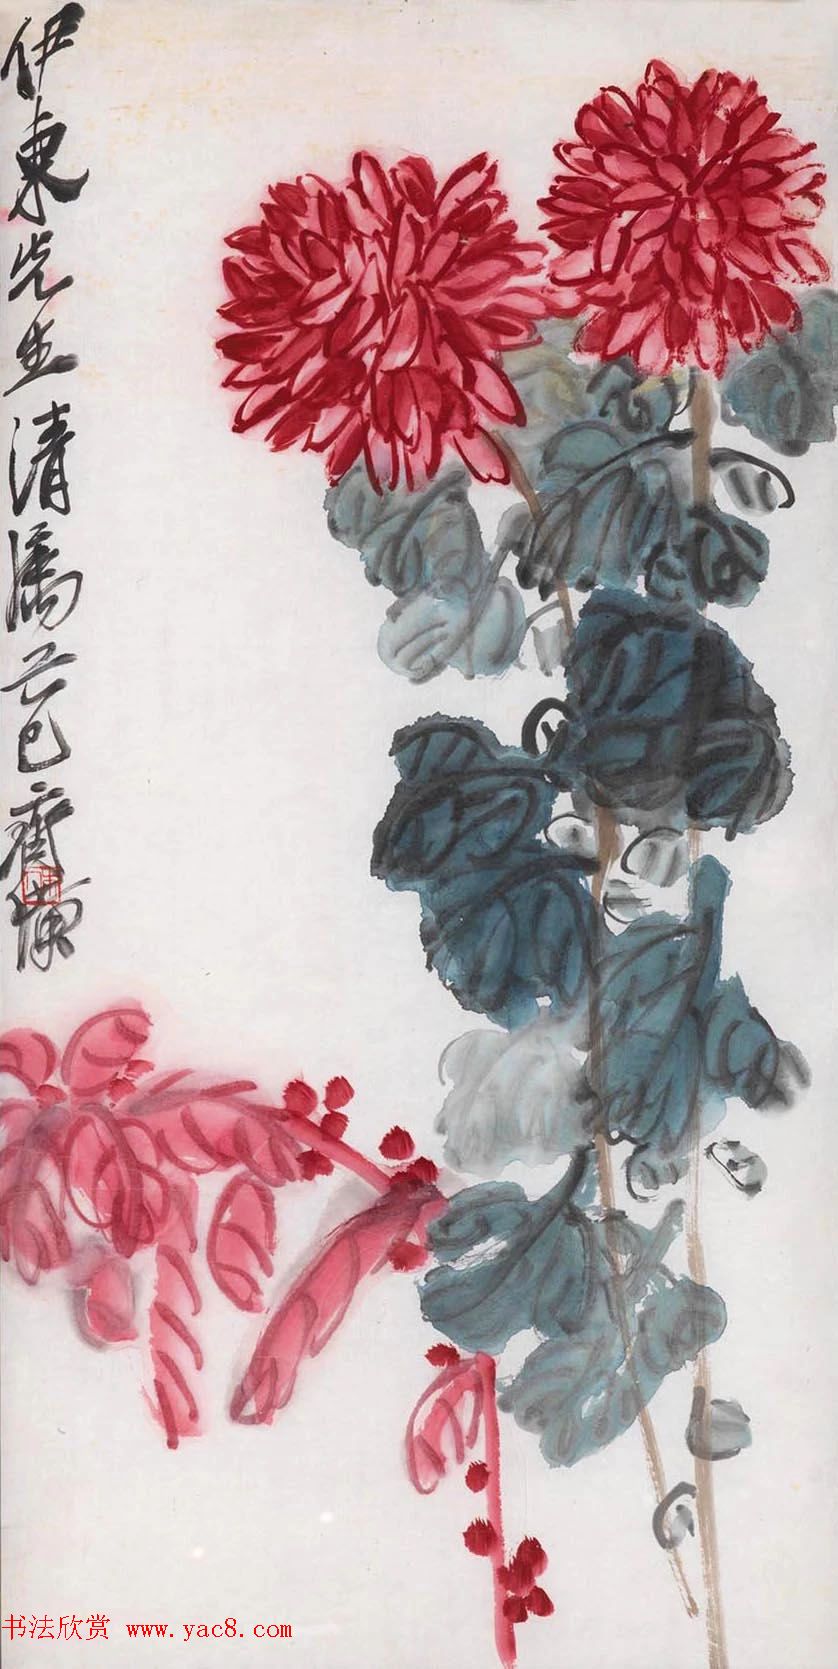 伊東先生清属乙巳齊璜
书法欣赏 www.yac8.com